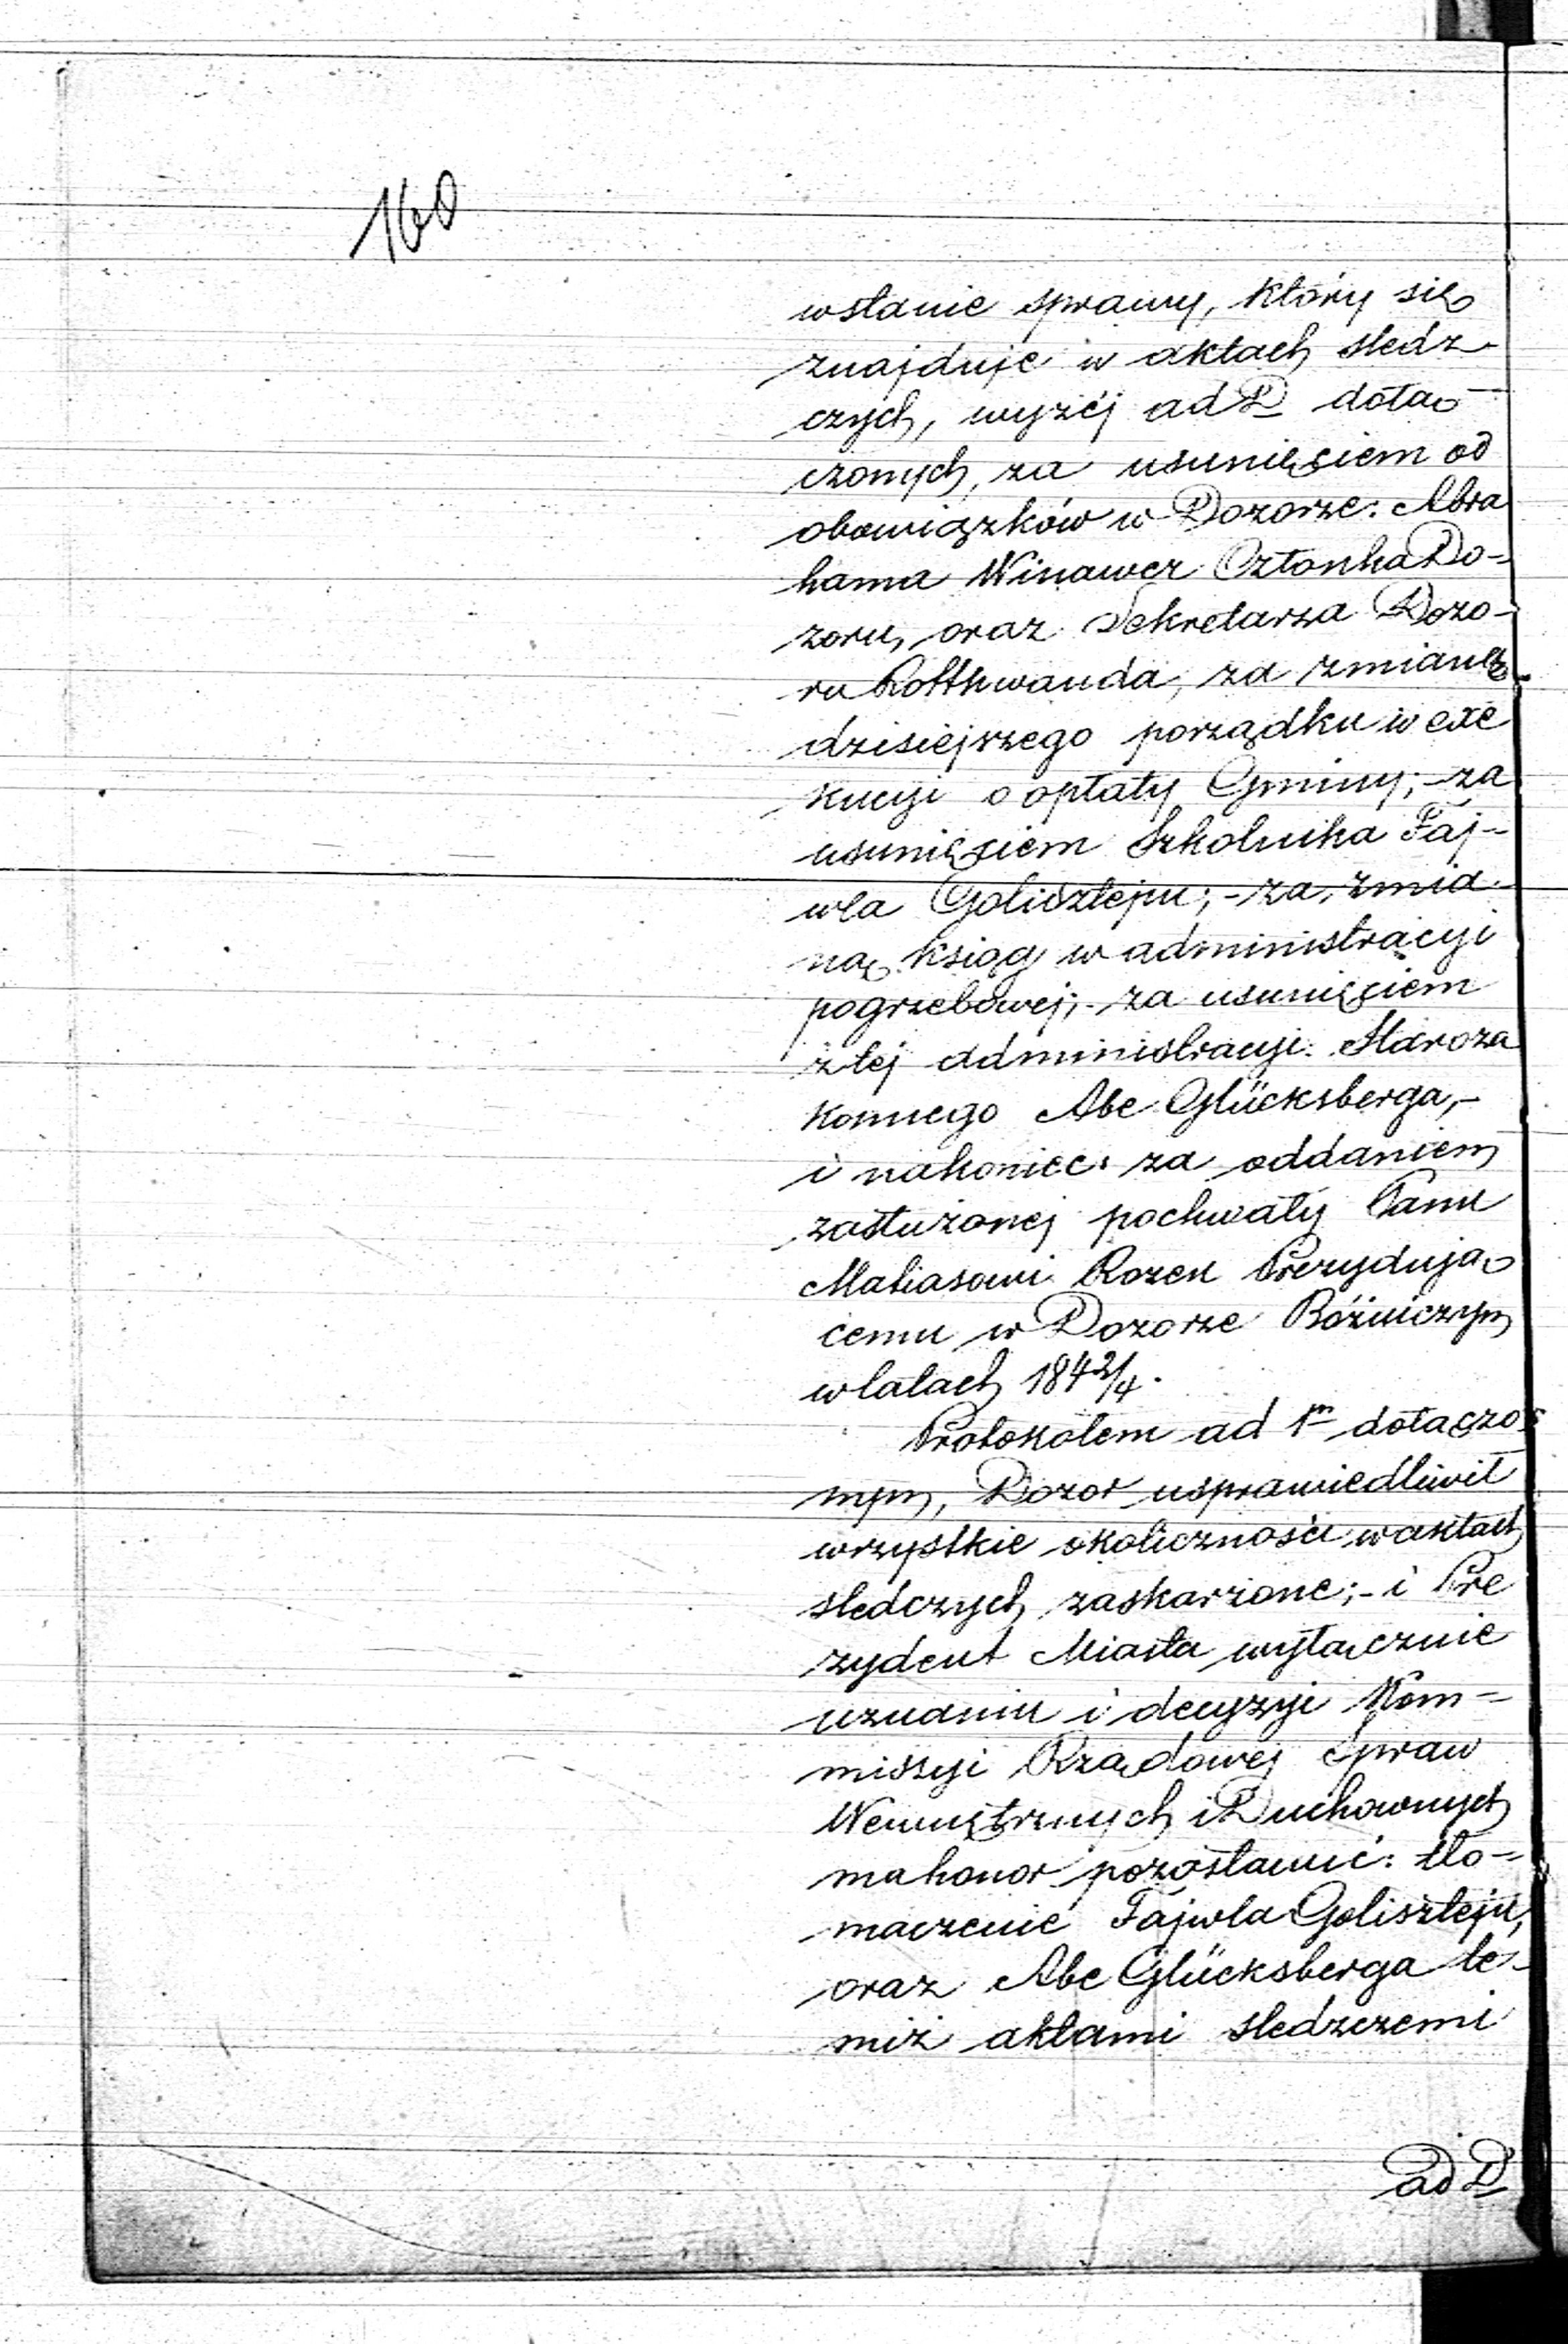 160
wstanie sprawy, który się
znajduje w aktach sledz-
czych, wyżej ad D dołą-
czonych, za usunięciem od
obowiązków w Dozorze: Abra
hama Winawer Członka Do-
zoru, oraz Sekretarza Dozo-
ru Rotthwanda, za zmianą
dzisiejszego porządku w exe
kucyi o opłaty Gminy; - za
usunięciem Szkolnika Faj-
wla Goliszteju; - za zmia-
ną ksiąg w administracyi
pogrzebowej; - za usunięciem
z tej administracyi Staroza
konnego Abe Glücksberga, -
i nakoniec: za oddaniem
zasłużonej pochwały Panu
Matiasowi Rozen Prezydują-
cemu w Dozorze Bóźniczym
w latach 184 2/4.
Protokółem ad 1m dołączo-
nym, Dozor usprawiedliwił
wszystkie okoliczności w aktach
sledczych zaskarżone; - i Pre
zydent Miasta wyłącznie
uznaniu i decyzyi Kom-
missyi Rządowej Spraw
Wewnętrznych i Duchownych
ma honor pozostawić: tło-
maczenie Fajwla Goliszteju,
oraz Abe Glücksberga te-
miż aktami sledzczemi
ad D